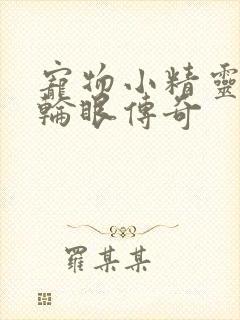 寵物小精靈
輪眼傳奇
羅某某